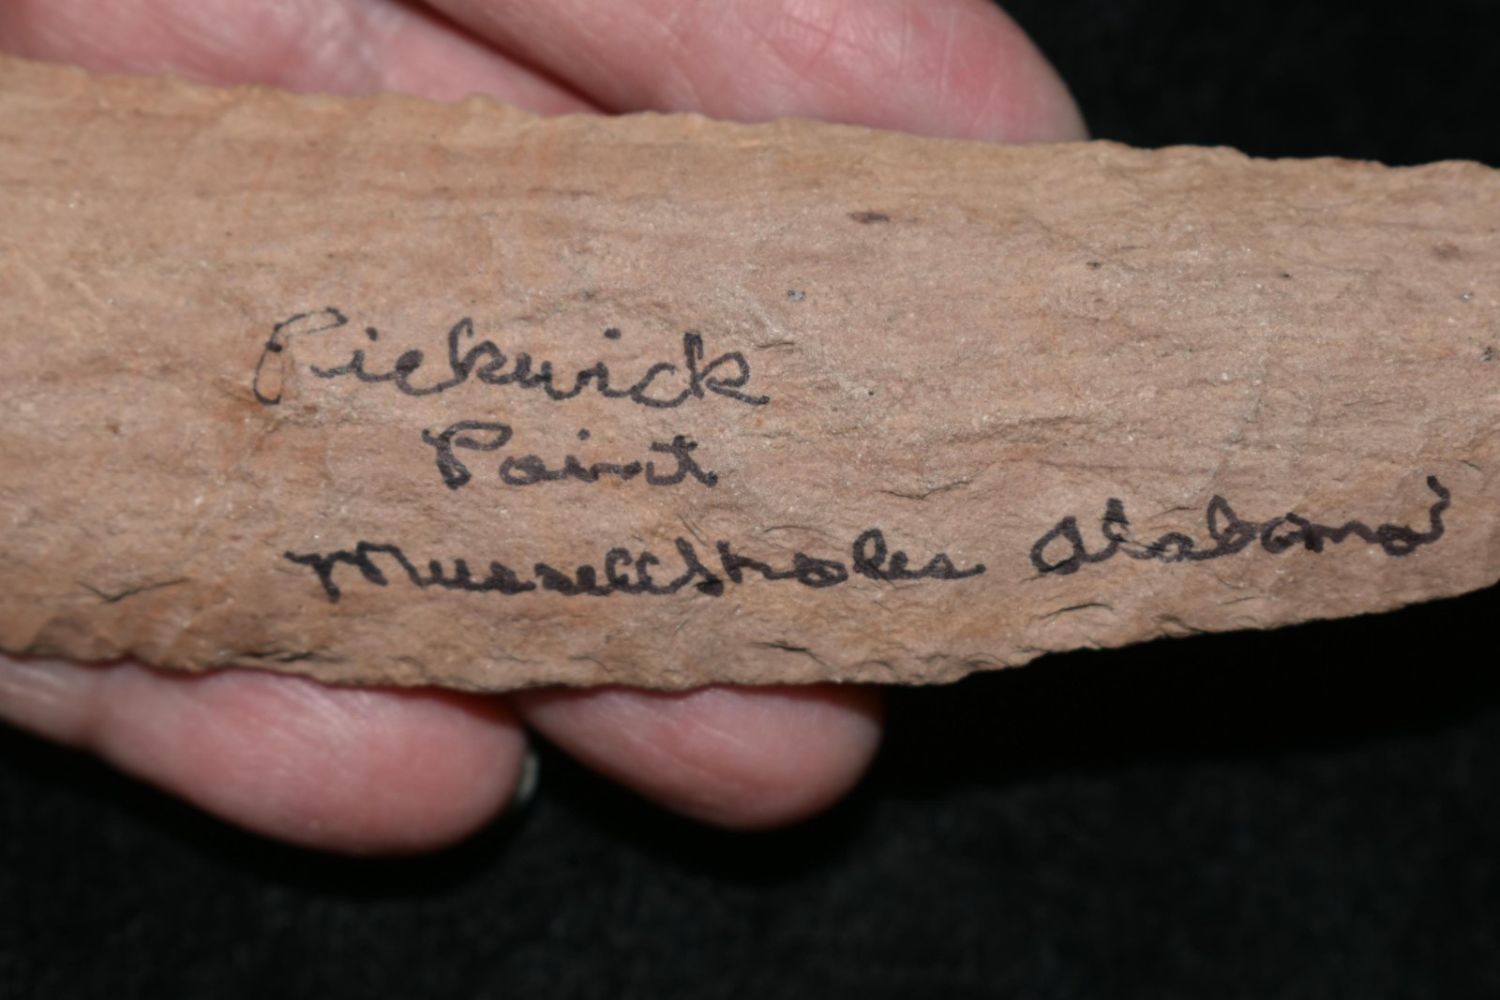 Pickwick
Point
Mussell Sholes Alabama